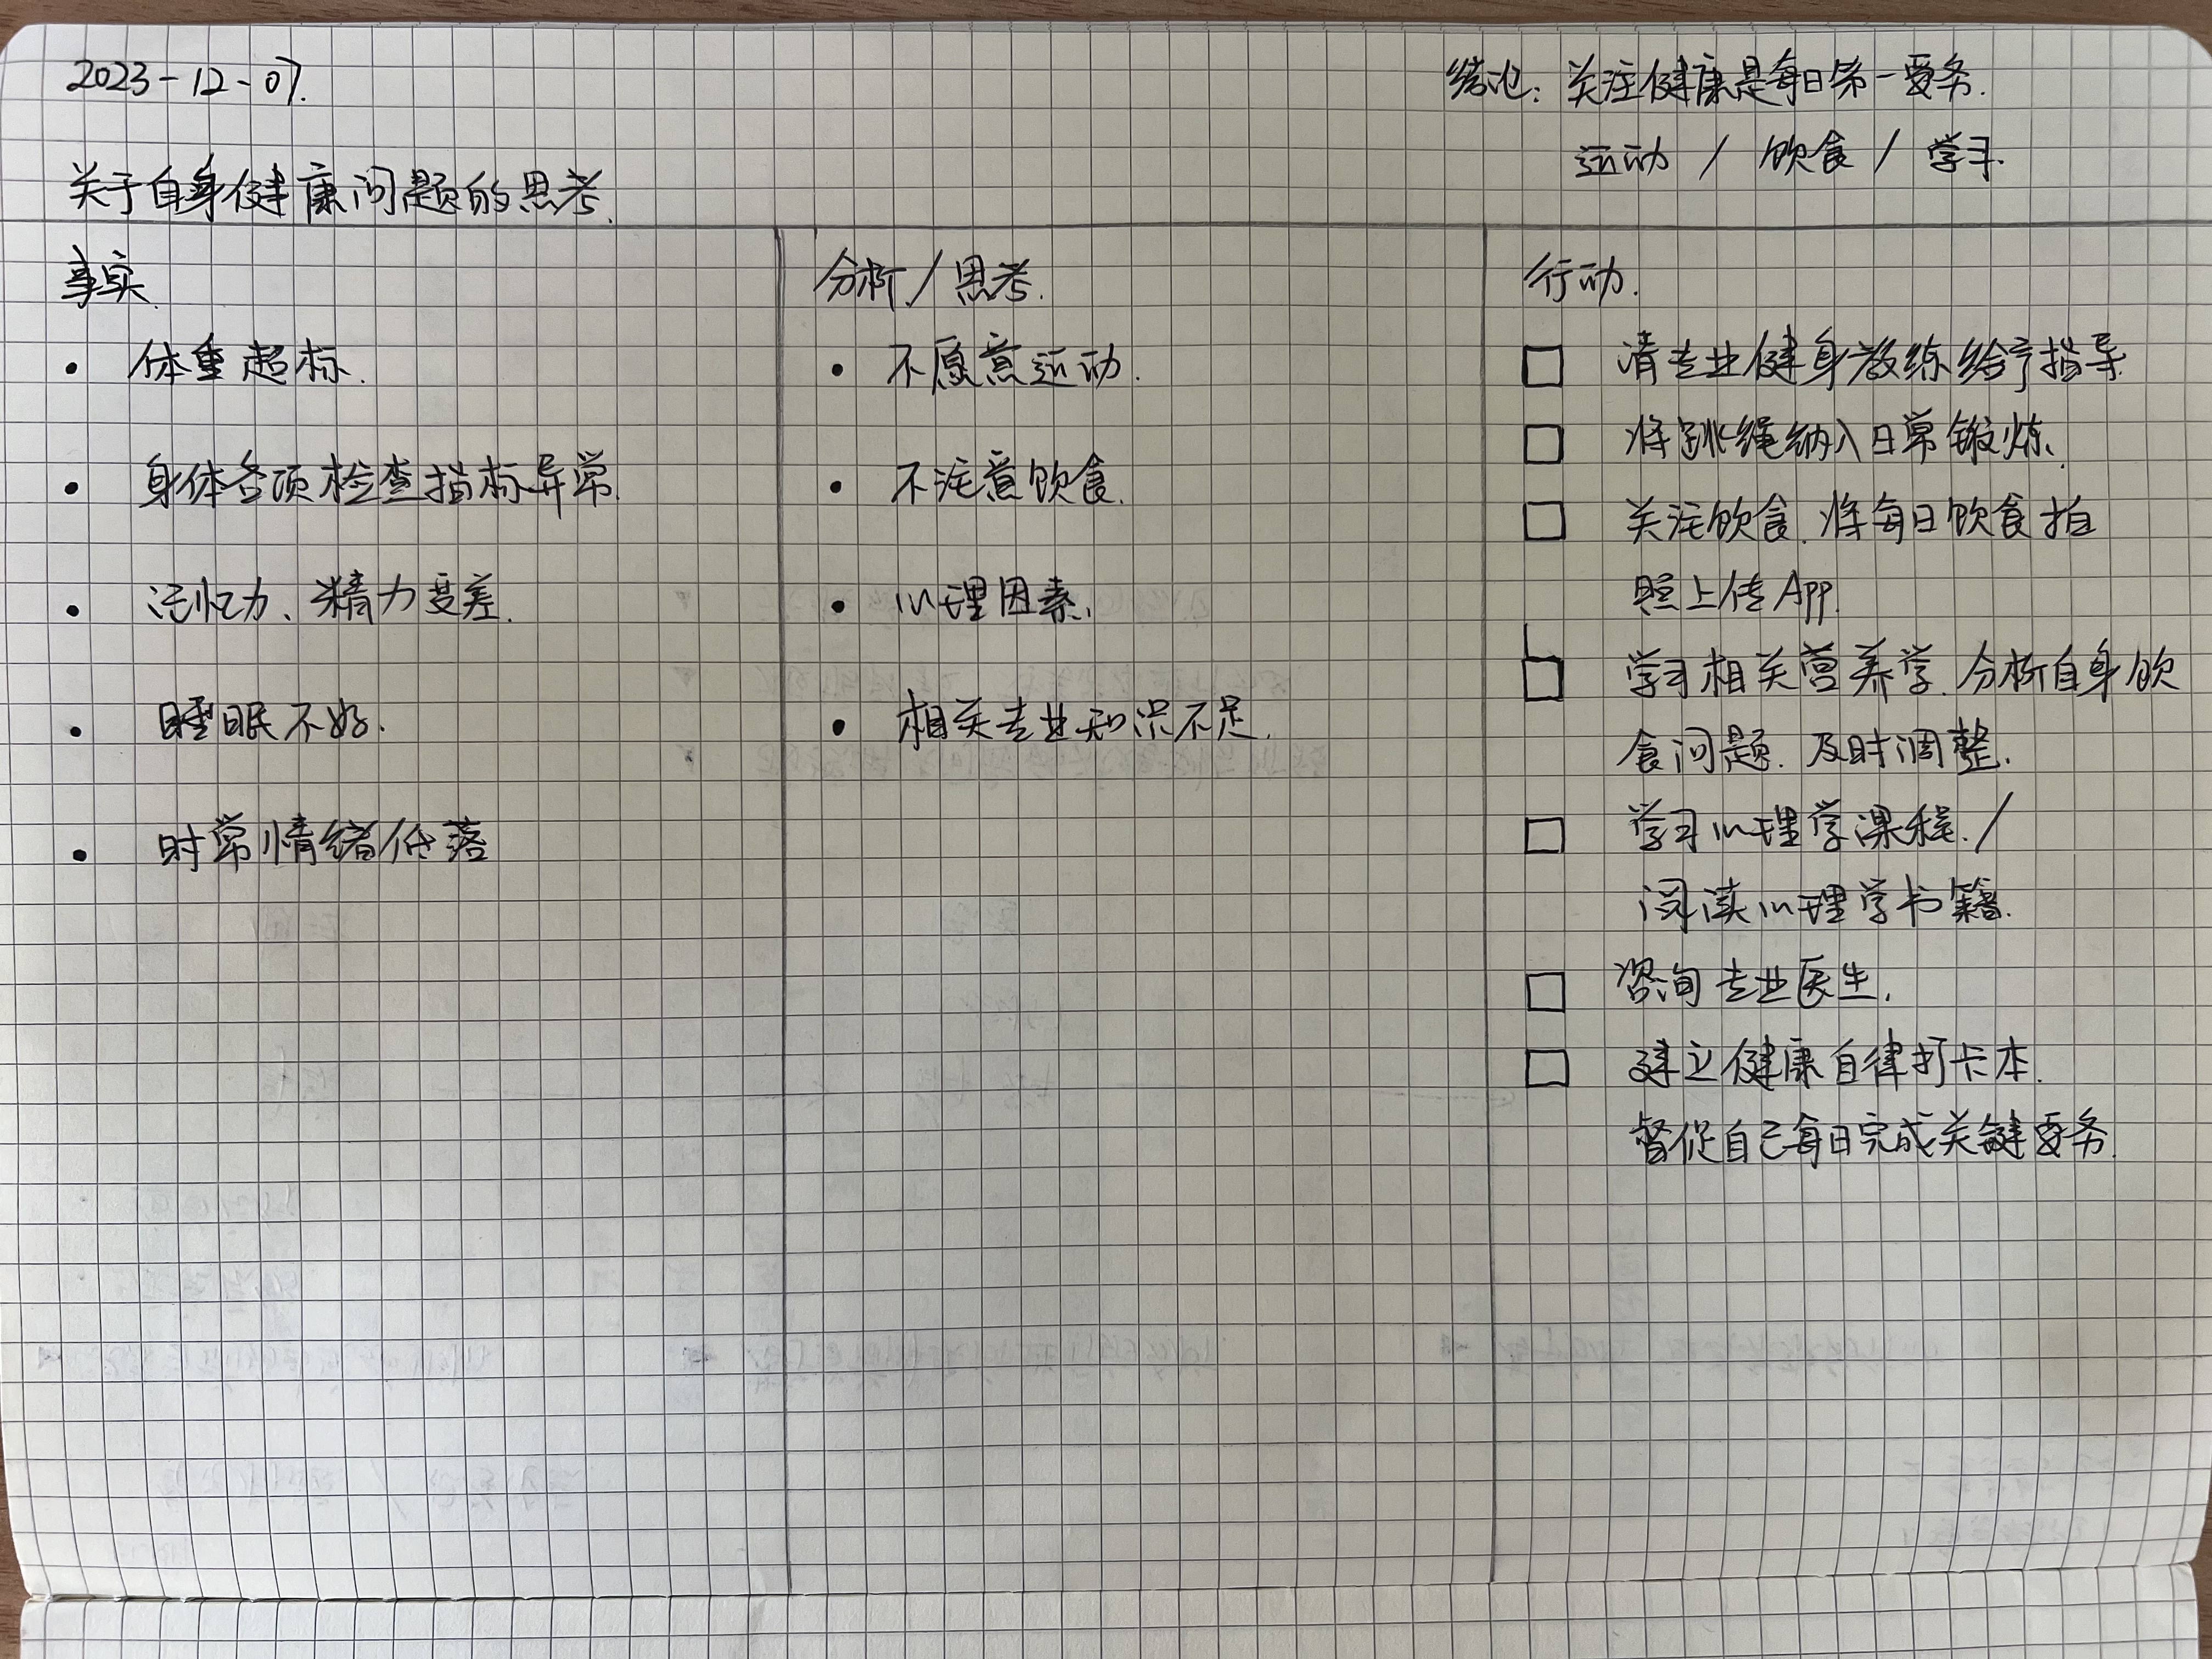 2023-12-07.
关于自身健康问题的思考.
结论: 关注健康是每日第一要务.
运动 / 饮食 / 学习.
事实.
• 体重超标.
• 身体各项检查指标异常.
• 记忆力、精力变差.
• 睡眠不好.
• 时常情绪低落
分析/思考.
• 不愿意运动.
• 不注意饮食.
• 心理因素.
• 相关专业知识不足.
行动.
□ 请专业健身教练给予指导
□ 将跳绳纳入日常锻炼.
□ 关注饮食.将每日饮食拍
照上传App.
□ 学习相关营养学.分析自身饮
食问题.及时调整.
□ 学习心理学课程./
阅读心理学书籍.
□ 咨询专业医生.
□ 建立健康自律打卡本.
督促自己每日完成关键要务.